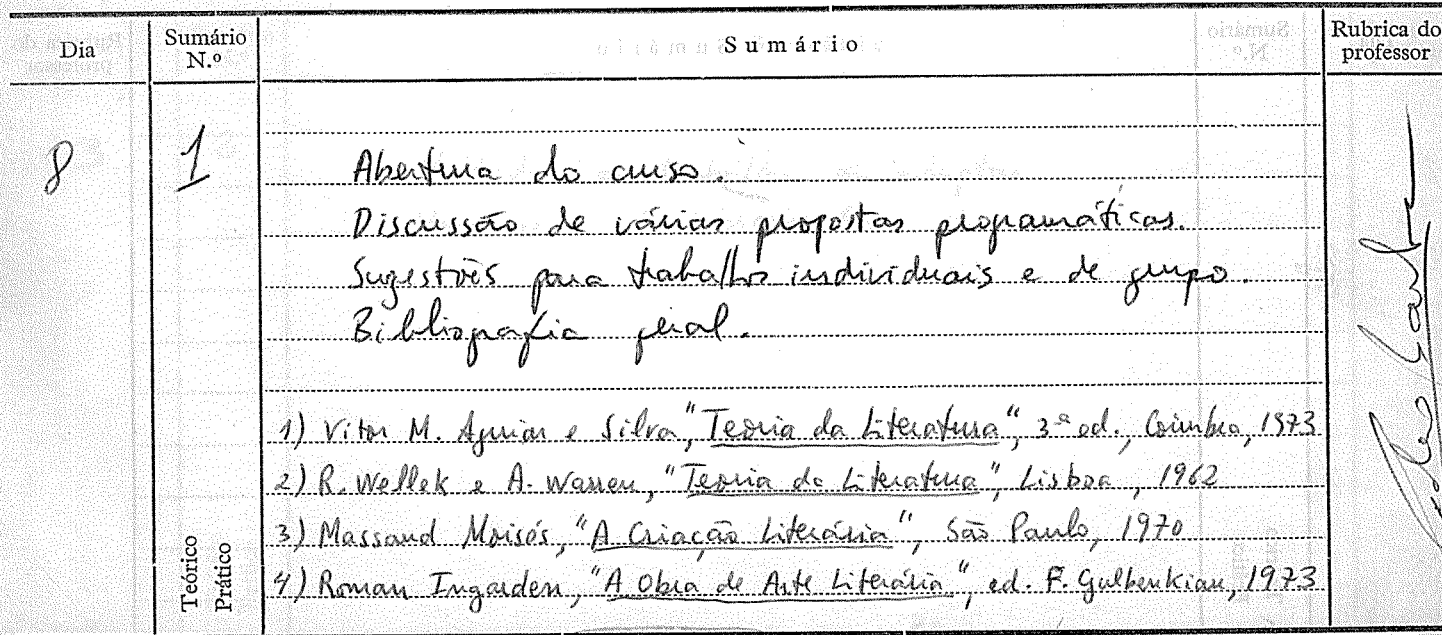 Dia
Sumário N.º
Sumário
Rubrica do professor
8
1
Abertura do curso.
Discussão de várias propostas programáticas.
Sugestões para trabalhos individuais e de grupo.
Bibliografia geral.
1) Vitor M. Aguiar e Silva, "Teoria da Literatura", 3ª ed., Coimbra, 1973
2) R. Wellek e A. Warren, "Teoria da Literatura", Lisboa, 1962
3) Massaud Moisés, "A Criação Literária", São Paulo, 1970
4) Roman Ingarden, "A Obra de Arte Literária", ed. F. Gulbenkian, 1973
Teórico
Prático